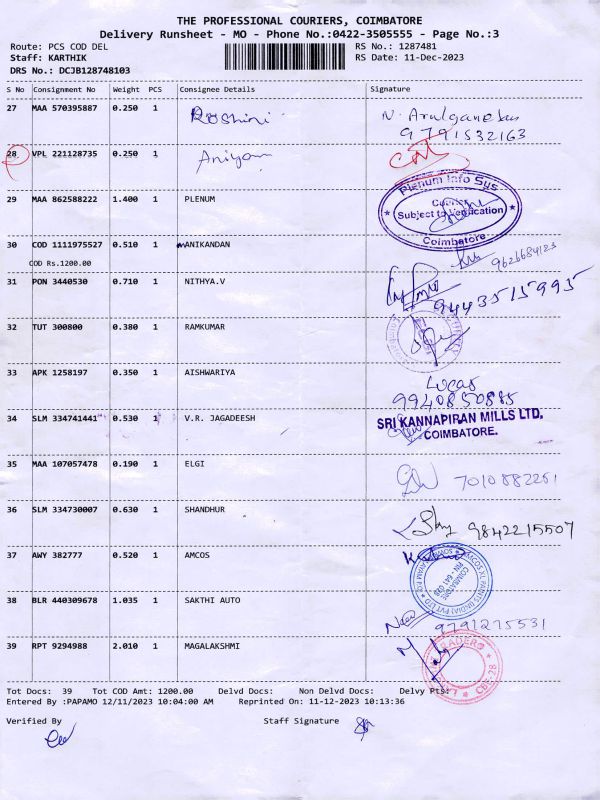 THE PROFESSIONAL COURIERS, COIMBATORE
Delivery Runsheet - MO - Phone No.:0422-3505555 - Page No.:3
Route: PCS COD DEL RS No.: 1287481
Staff: KARTHIK RS Date: 11-Dec-2023
DRS No.: DCJB128748103
S No Consignment No Weight PCS Consignee Details Signature
27 MAA 570395887 0.250 1 Roshini N. Arulganesan
9791532163
28 VPL 221128735 0.250 1
29 MAA 862588222 1.400 1 PLENUM Plenum Info Sys
Subject to Verification
Coimbatore
30 COD 1111975527 0.510 1 MANIKANDAN 9626684123
COD Rs.1200.00
31 PON 3440530 0.710 1 NITHYA.V 9443515995
32 TUT 300800 0.380 1 RAMKUMAR
33 APK 1258197 0.350 1 AISHWARIYA Lucas
9940850885
34 SLM 334741441 0.530 1 V.R. JAGADEESH SRI KANNAPIRAN MILLS LTD.
COIMBATORE.
35 MAA 107057478 0.190 1 ELGI 7010882261
36 SLM 334730007 0.630 1 SHANDHUR 9842215507
37 AWY 382777 0.520 1 AMCOS
38 BLR 440309678 1.035 1 SAKTHI AUTO 9791275531
39 RPT 9294988 2.010 1 MAGALAKSHMI
Tot Docs: 39 Tot COD Amt: 1200.00 Delvd Docs: Non Delvd Docs: Delvy Pts:
Entered By :PAPAMO 12/11/2023 10:04:00 AM Reprinted On: 11-12-2023 10:13:36
Verified By Staff Signature